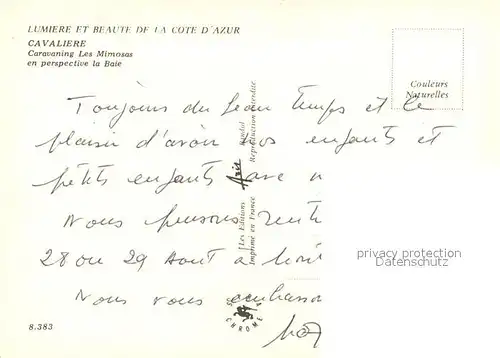 LUMIERE ET BEAUTE DE LA COTE D'AZUR
CAVALIERE
Caravaning Les Mimosas
en perspective la Baie
Couleurs
Naturelles
Toujours du beau temps et le
plaisir d'avoir nos enfants et
petits enfants avec n
Nous pensons rentr
28 ou 29 Aout a
Nous vous embrasson
Les Editions Aris Bandol
Imprimé en France Reproduction interdite
CHROME
8.383
privacy protection
Datenschutz